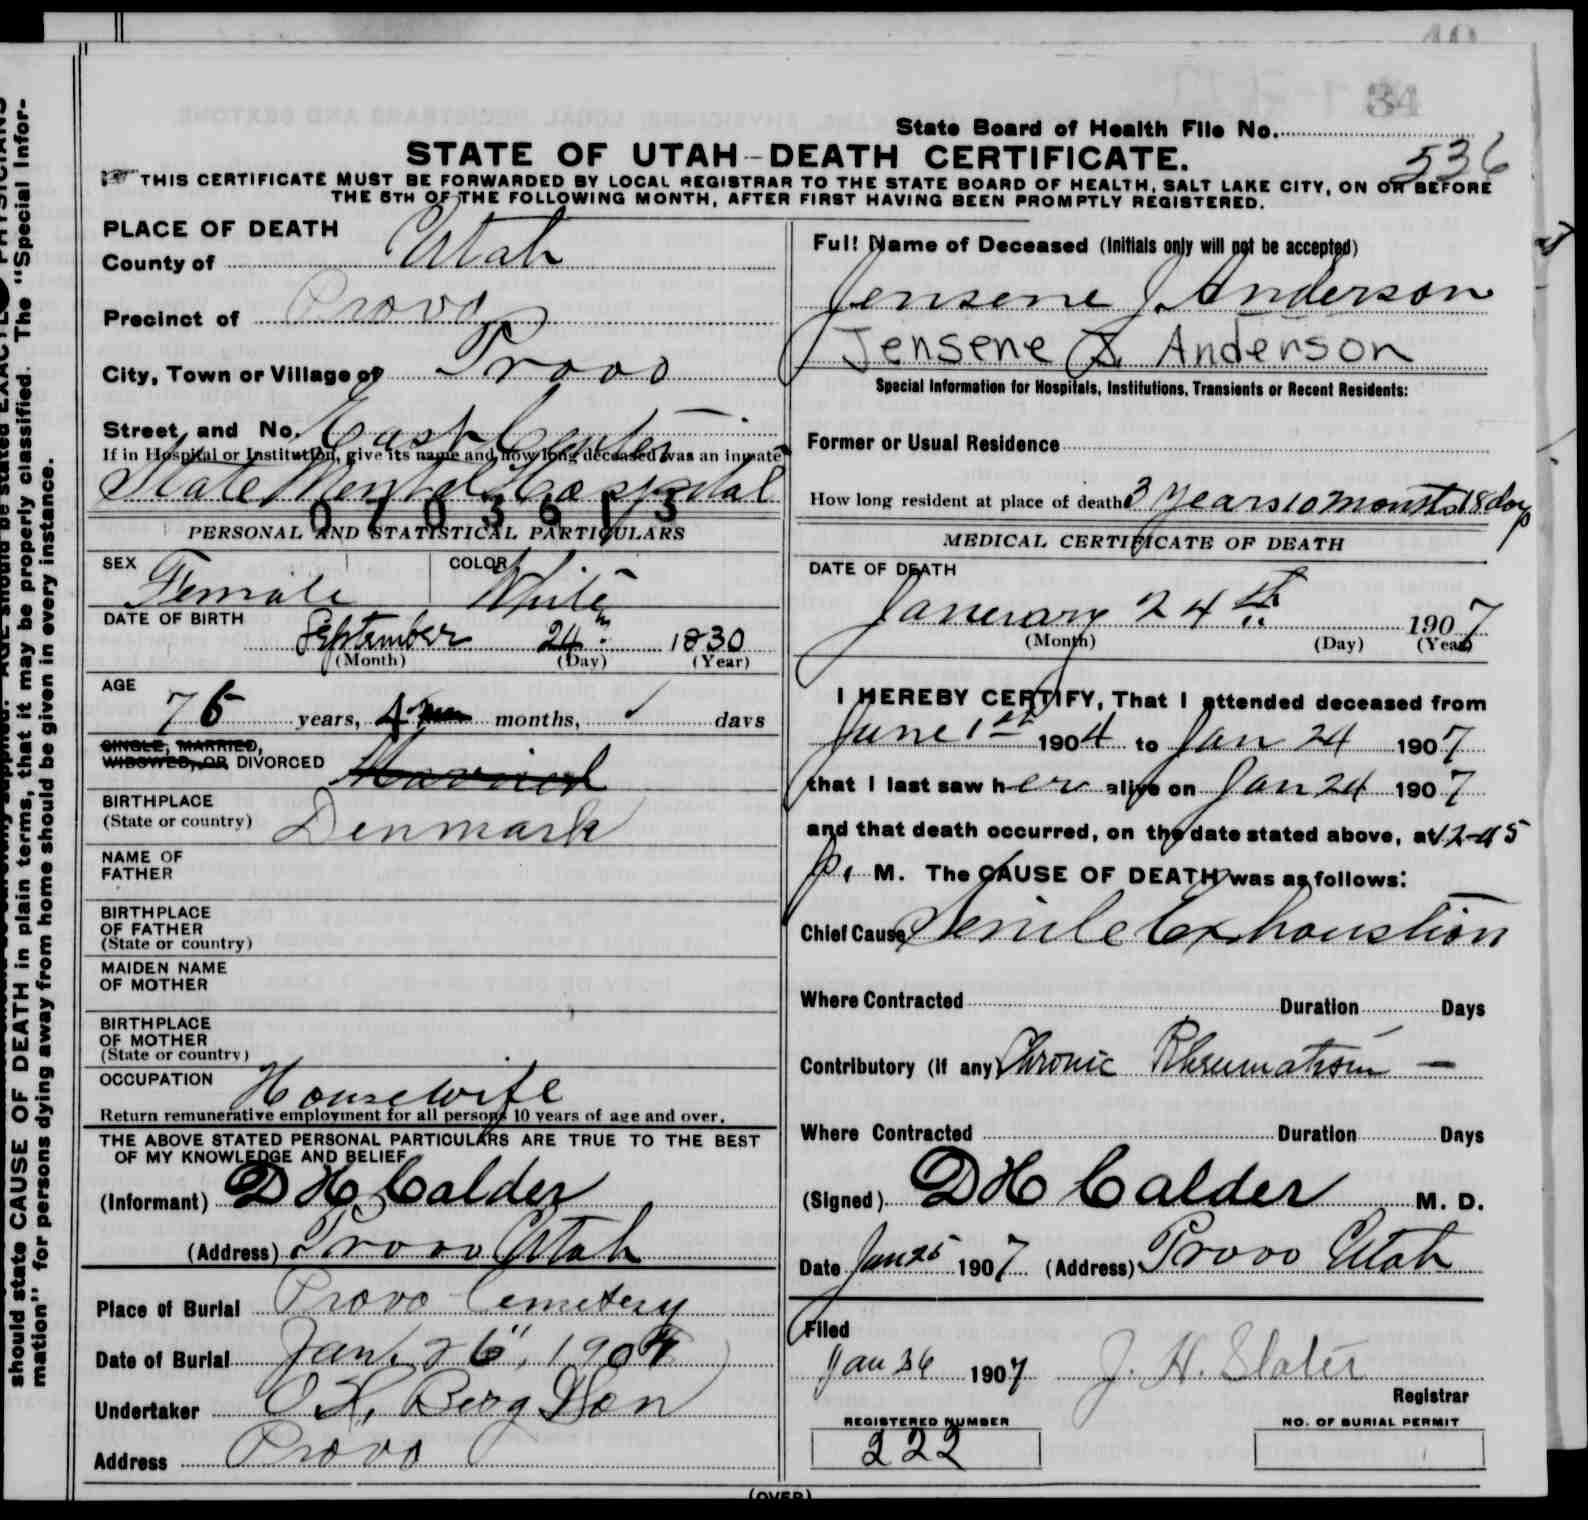 34
State Board of Health File No.
536
STATE OF UTAH--DEATH CERTIFICATE.
THIS CERTIFICATE MUST BE FORWARDED BY LOCAL REGISTRAR TO THE STATE BOARD OF HEALTH, SALT LAKE CITY, ON OR BEFORE
THE 5TH OF THE FOLLOWING MONTH, AFTER FIRST HAVING BEEN PROMPTLY REGISTERED.
should state CAUSE OF DEATH in plain terms, that it may be properly classified. The "Special Infor-
mation" for persons dying away from home should be given in every instance.
PLACE OF DEATH
County of Utah
Precinct of Provo
City, Town or Village of Provo
Street and No. East Center
If in Hospital or Institution, give its name and how long deceased was an inmate
State Mental Hospital
0703613
PERSONAL AND STATISTICAL PARTICULARS
SEX Female COLOR White
DATE OF BIRTH
September 24th 1830
(Month) (Day) (Year)
AGE
76 years, 4 months, days
SINGLE, MARRIED,
WIDOWED, OR DIVORCED Married
BIRTHPLACE
(State or country) Denmark
NAME OF
FATHER
BIRTHPLACE
OF FATHER
(State or country)
MAIDEN NAME
OF MOTHER
BIRTHPLACE
OF MOTHER
(State or country)
OCCUPATION Housewife
Return remunerative employment for all persons 10 years of age and over.
THE ABOVE STATED PERSONAL PARTICULARS ARE TRUE TO THE BEST
OF MY KNOWLEDGE AND BELIEF
(Informant) D H Calder
(Address) Provo Utah
Place of Burial Provo Cemetery
Date of Burial Jan. 26", 1907
Undertaker O. H. Berg & Son
Address Provo
Full Name of Deceased (Initials only will not be accepted)
Jensene J. Anderson
Jensene J. Anderson
Special Information for Hospitals, Institutions, Transients or Recent Residents:
Former or Usual Residence
How long resident at place of death 3 years 10 months 18 days
MEDICAL CERTIFICATE OF DEATH
DATE OF DEATH
Januerary 24th 1907
(Month) (Day) (Year)
I HEREBY CERTIFY, That I attended deceased from
June 1st 1904 to Jan 24 1907
that I last saw her alive on Jan 24 1907
and that death occurred, on the date stated above, at 12-45
p. M. The CAUSE OF DEATH was as follows:
Chief Cause Senile Exhaustion
Where Contracted Duration Days
Contributory (If any) Chronic Rheumatism —
Where Contracted Duration Days
(Signed) D H Calder M. D.
Date Jan 25 1907 (Address) Provo Utah
Filed
Jan 26 1907 J. H. Slater
Registrar
REGISTERED NUMBER NO. OF BURIAL PERMIT
222
(OVER)